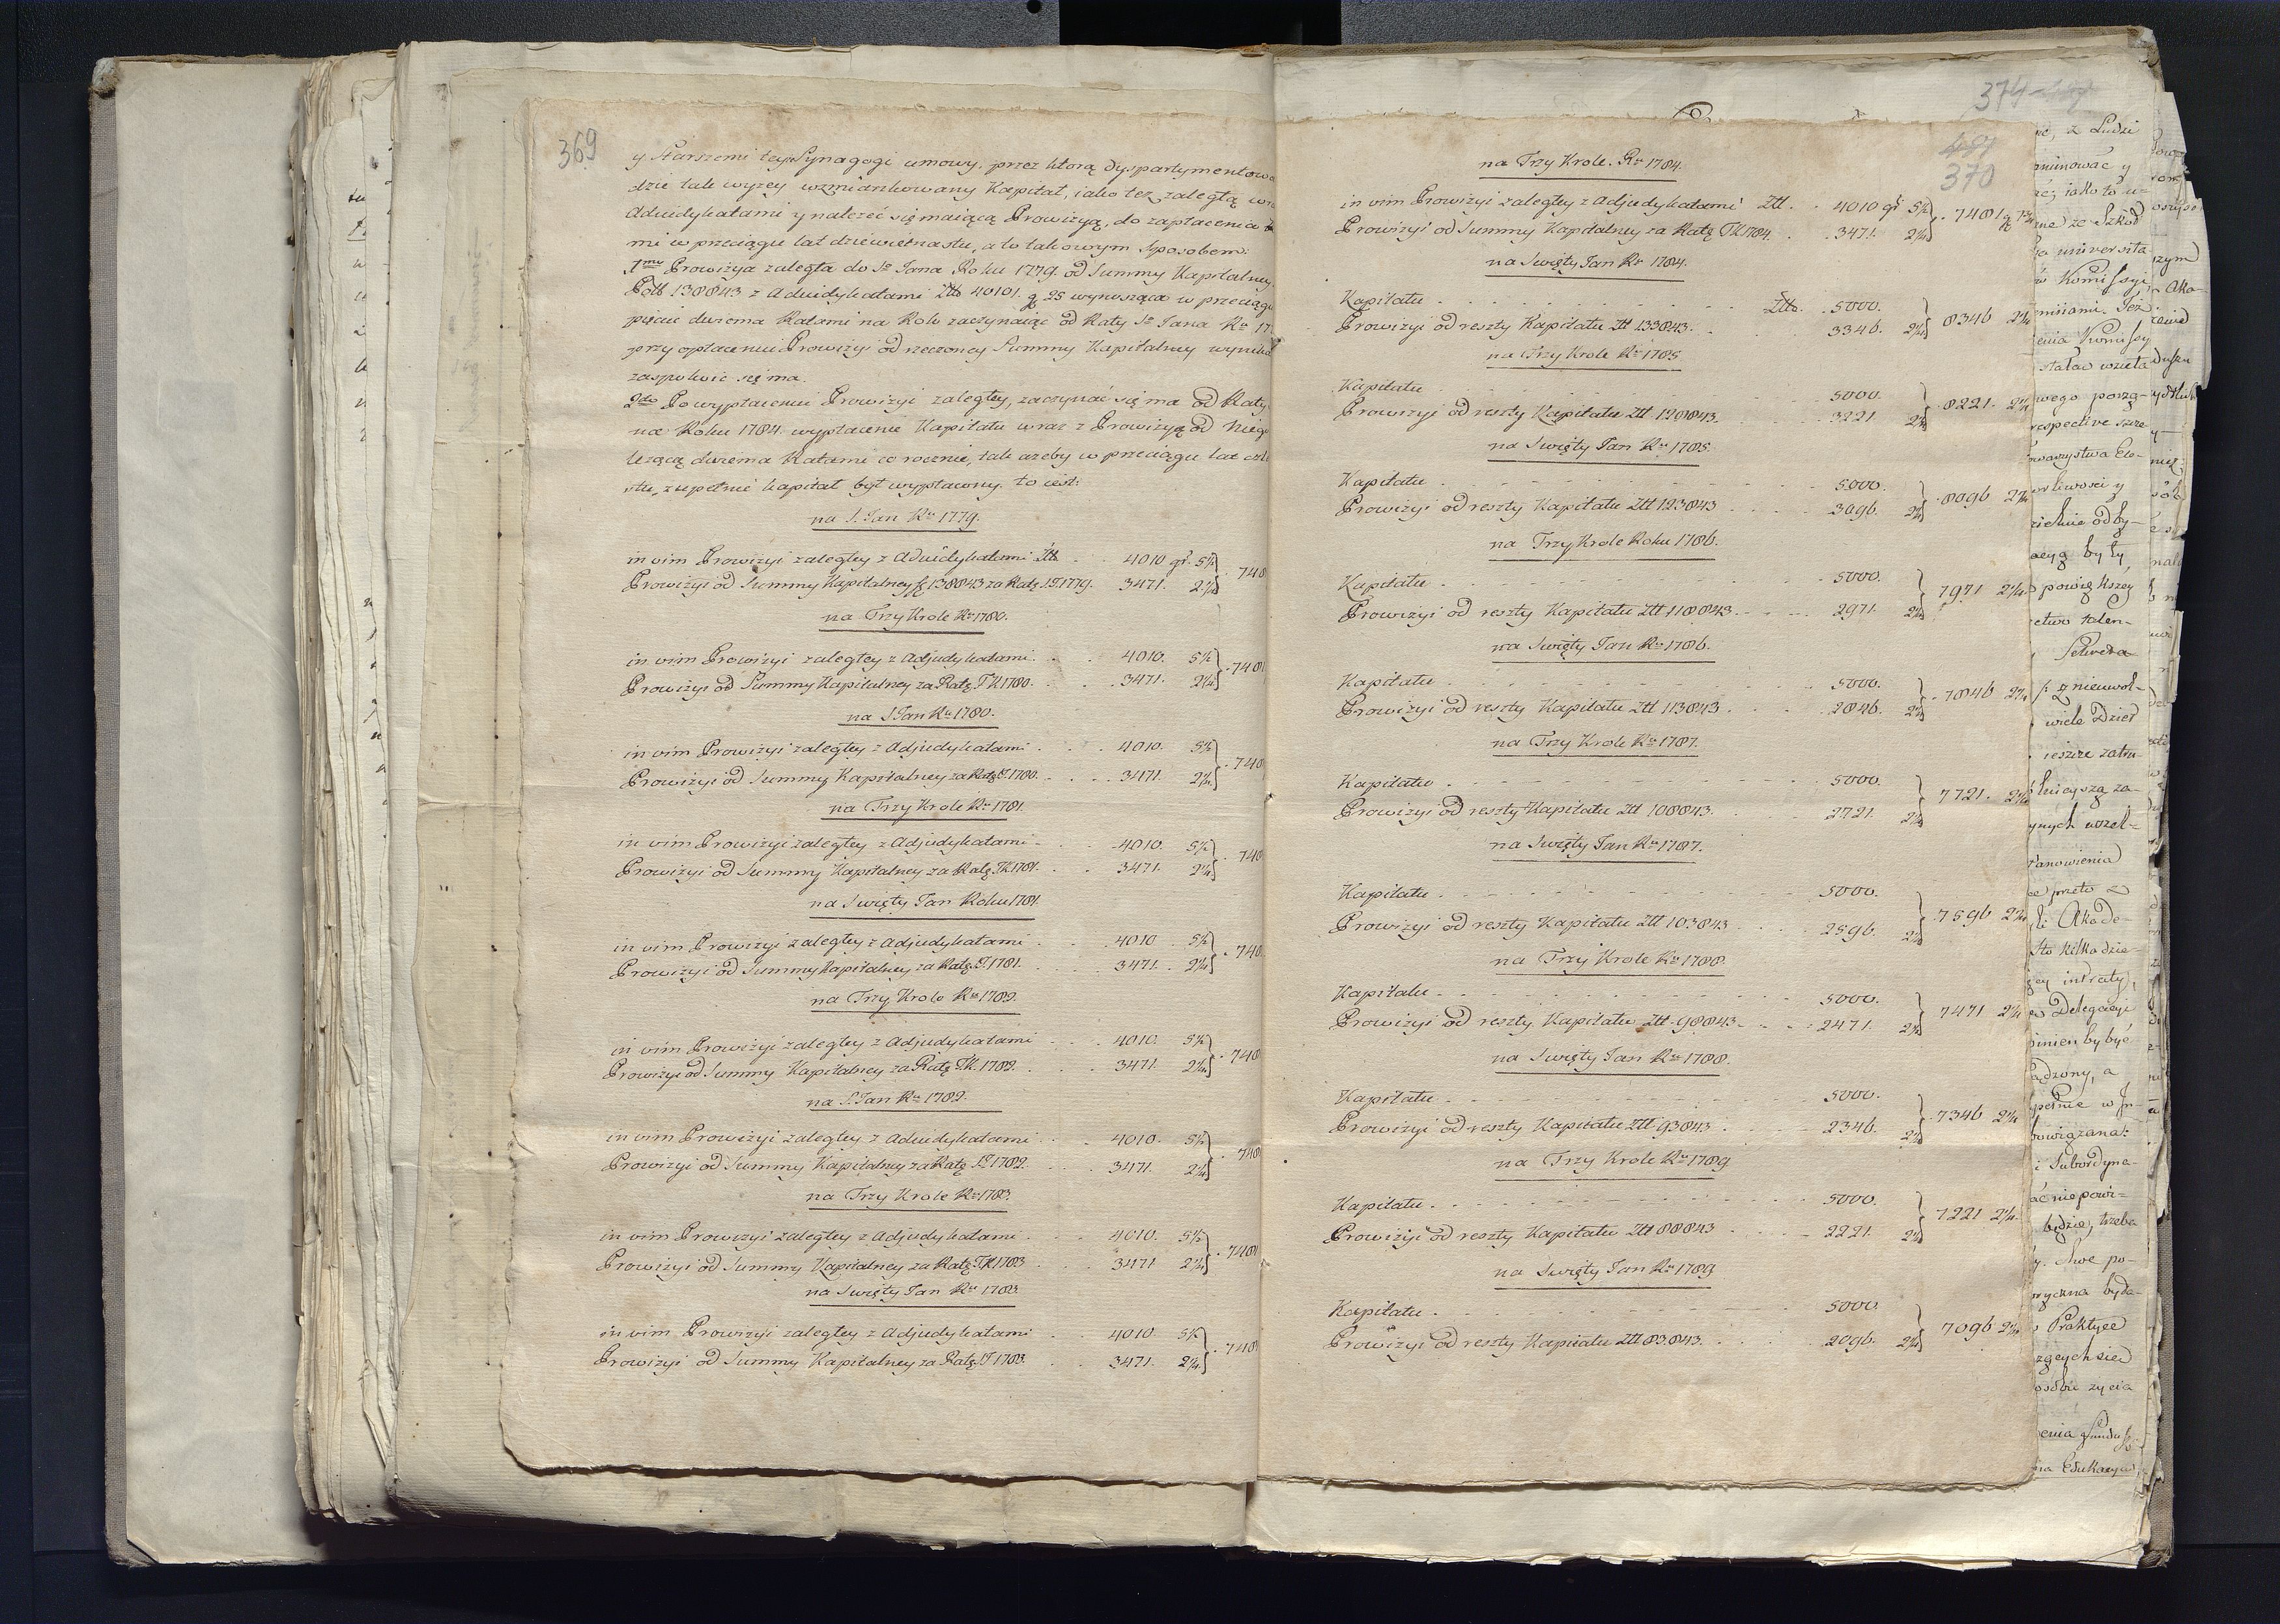 369
y Starszemi tey Synagogi umowy, przez ktorą dyspartymentowa
dzie tak wyżey wzmiankowany Kapitał, iako też zaległą
Adiudykatami y należeć się maiącą Prowizyą, do zapłacenia
mi w przeciągu lat dziewietnastu, a to takowym sposobem:
1mo Prowizya zaległa do St Jana Roku 1779. od Summy Kapitalney
138843 z Adiudykatami Ztt 40101. g 25 wynosząca w przeciągu
pięciu dwiema Ratami na Rok zaczynaiąc od Raty St Jana Ru 17
przy opłaceniu Prowizyi od rzeczoney Summy Kapitalney
zaspokoić się ma.
2do Po wypłaceniu Prowizyi zaległey, zaczynać się ma od Raty
na Roku 1784. wypłacenie Kapitału wraz z Prowizyą od niego
leżącą dwiema Ratami co rocznie, tak ażeby w przeciągu lat
stu, zupełnie kapitał był wypłacony. to iest:
na S. Jan Ru 1779.
in vim Prowizyi zaległey z Adiudykatami Ztt . 4010 gr. 5½ } 748
Prowizyi od Summy Kapitalney 138843 za Ratę S.J.1779. 3471. 2¼
na Trzy Krole Ru 1780.
in vim Prowizyi zaległey z Adjudykatami . . 4010. 5½ } 748
Prowizyi od Summy Kapitalney za Ratę T.K.1780. . . 3471. 2¼
na S Jan Ru 1780.
in vim Prowizyi zaległey z Adjudykatami . . . 4010. 5½ } 748
Prowizyi od Summy Kapitalney za Ratę S.J.1780. . . . 3471. 2¼
na Trzy Krole Ru 1781.
in vim Prowizyi zaległey z Adjudykatami . . 4010. 5½ } 748
Prowizyi od Summy Kapitalney za Ratę T.K.1781. . . 3471. 2¼
na Swięty Jan Roku 1781.
in vim Prowizyi zaległey z Adjudykatami . . . 4010 . 5½ } 748
Prowizyi od Summy Kapitalney za Ratę S.J.1781. . . 3471. 2¼
na Trzy Krole Ru 1782.
in vim Prowizyi zaległey z Adjudykatami . . . 4010. 5½ } 748
Prowizyi od Summy Kapitalney za Ratę T.K.1782. . . 3471. 2¼
na S. Jan Ru 1782.
in vim Prowizyi zaległey z Adiudykatami . . . 4010. 5½ } 748
Prowizyi od Summy Kapitalney za Ratę S.J.1782. . . 3471. 2¼
na Trzy Krole Ru 1783.
in vim Prowizyi zaległey z Adjudykatami . . . 4010. 5½ } 748
Prowizyi od Summy Kapitalney za Ratę T.K.1783 . . 3471 2¼
na Swięty Jan Ru 1783.
in vim Prowizyi zaległey z Adjudykatami . . . 4010. 5½ } 748
Prowizyi od Summy Kapitalney za Ratę S.J.1783. . . 3471. 2¼
374
370
na Trzy Krole. Ru 1784.
in vim Prowizyi zaległey z Adjudykatami Ztt. . 4010 gr 5½ } 7481 g 7¾
Prowizyi od Summy Kapitalney za Ratę T.K.1784. . 3471. 2¼
na Swięty Jan Ru 1784.
Kapitału . . . . . . Ztt. 5000. } 8346 2¼
Prowizyi od reszty Kapitału Ztt 133843. . . 3346. 2¼
na Trzy Krole Ru 1785
Kapitału . . . . . . 5000. } 8221. 2¼
Prowizyi od reszty Kapitału Ztt 128843. . . 3221 2¼
na Swięty Jan Ru 1785.
Kapitału . . . . . . 5000. } 8096 2¼
Prowizyi od reszty Kapitału Ztt 123843 . . . 3096. 2¼
na Trzy Krole Roku 1786.
Kapitału . . . . . . 5000. } 7971 2¼
Prowizyi od reszty Kapitału Ztt 118843. . . . 2971. 2¼
na Swięty Jan Ru 1786.
Kapitału . . . . . . 5000. } 7846 2¼
Prowizyi od reszty Kapitału Ztt 113843 . . . 2846. 2¼
na Trzy Krole Ru 1787.
Kapitału . . . . . . 5000. } 7721. 2¼
Prowizyi od reszty Kapitału Ztt 108843. . . 2721. 2¼
na Swięty Jan Ru 1787.
Kapitału . . . . . . 5000. } 7596 2¼
Prowizyi od reszty Kapitału Ztt 103843 . . . 2596. 2¼
na Trzy Krole Ru 1788.
Kapitału . . . . . . 5000. } 7471 2¼
Prowizyi od reszty Kapitału Ztt 98843. . . . 2471. 2¼
na Swięty Jan Ru 1788.
Kapitału . . . . . . 5000. } 7346 2¼
Prowizyi od reszty Kapitału Ztt 93843 . . . 2346. 2¼
na Trzy Krole Ru 1789
Kapitału . . . . . . 5000. } 7221 2¼
Prowizyi od reszty Kapitału Ztt 88843 . . . 2221. 2¼
na Swięty Jan Ru 1789
Kapitału . . . . . . 5000. } 7096 2¼
Prowizyi od reszty Kapitału Ztt 83843. . . 2096. 2¼
z Ludzi
minować y
jako to u=
ze Szkod
universita
Komissyi
enia Komissy
stałae wzieta
wego porzą=
respective szre
warzystwa Elo=
liwosci y
odby=
były
powiękzey
Sekreta
z nieuwol=
wiele Dzieł
ieszcze zatru
nieysza za=
ynych wzel=
tanowienia
przeto
Akade=
Sto kilkadzie=
intraty,
Delegacyi
winien by być
ądzony, a
pełnie w In=
bowiązana:
i Subordyna=
ać niepowi=
będzie, trzeba
chwe po=
ryczna bydz=
Praktyce
zących sied
osobie zycia
enia fundusz
na Edukacyi